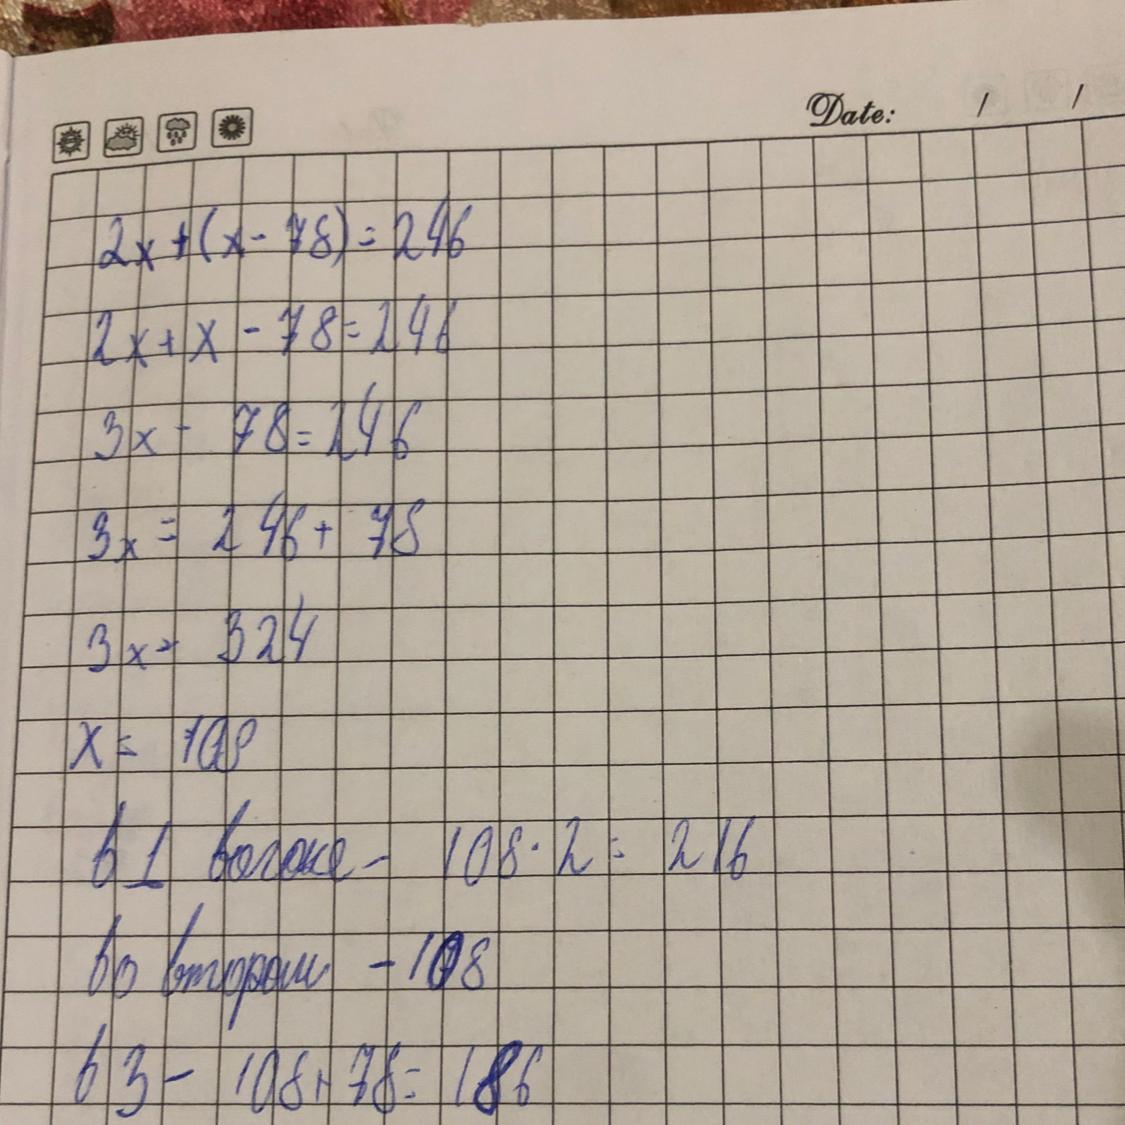 Date: / /
2x+(x-78)=246
2x+x-78=246
3x-78=246
3x=246+78
3x=324
x=108
в 1 вагоне - 108·2=216
во втором - 108
в 3 - 108+78=186